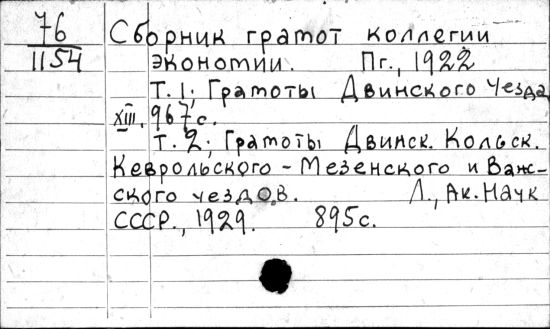 76
1154
Сборник грамот коллегии
экономии. Пг., 1922
Т. 1; Грамоты Двинского Уезда
XIII, 967с.
Т. 2; Грамоты Двинск. Кольск.
Кеврольского - Мезенского и Важ-
ского уездов. Л., Ак. Наук
СССР., 1929. 895с.